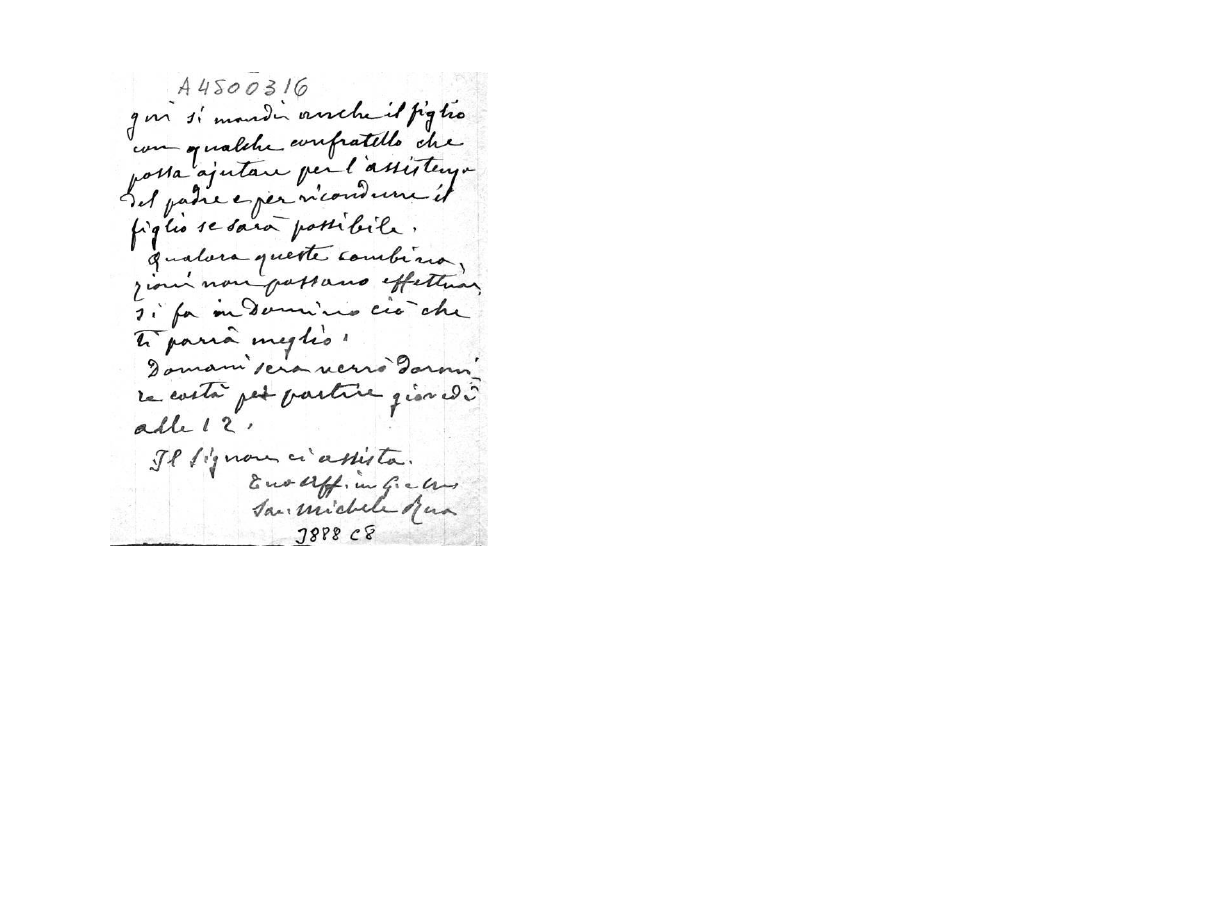 A4500316
gni si mandi anche il figlio
con qualche confratello che
possa ajutare per l'assistenza
del padre e per ricondurre il
figlio se sarà possibile.
Qualora queste combina,
zioni non possano effettuar,
si fa in Domino ciò che
ti parrà meglio.
Domani sera verrò dormi,
re costà per partire giovedì
alle 12.
Il Signore ci assista.
Tuo aff. in G. e
Sac. Michele Rua
3888 C8